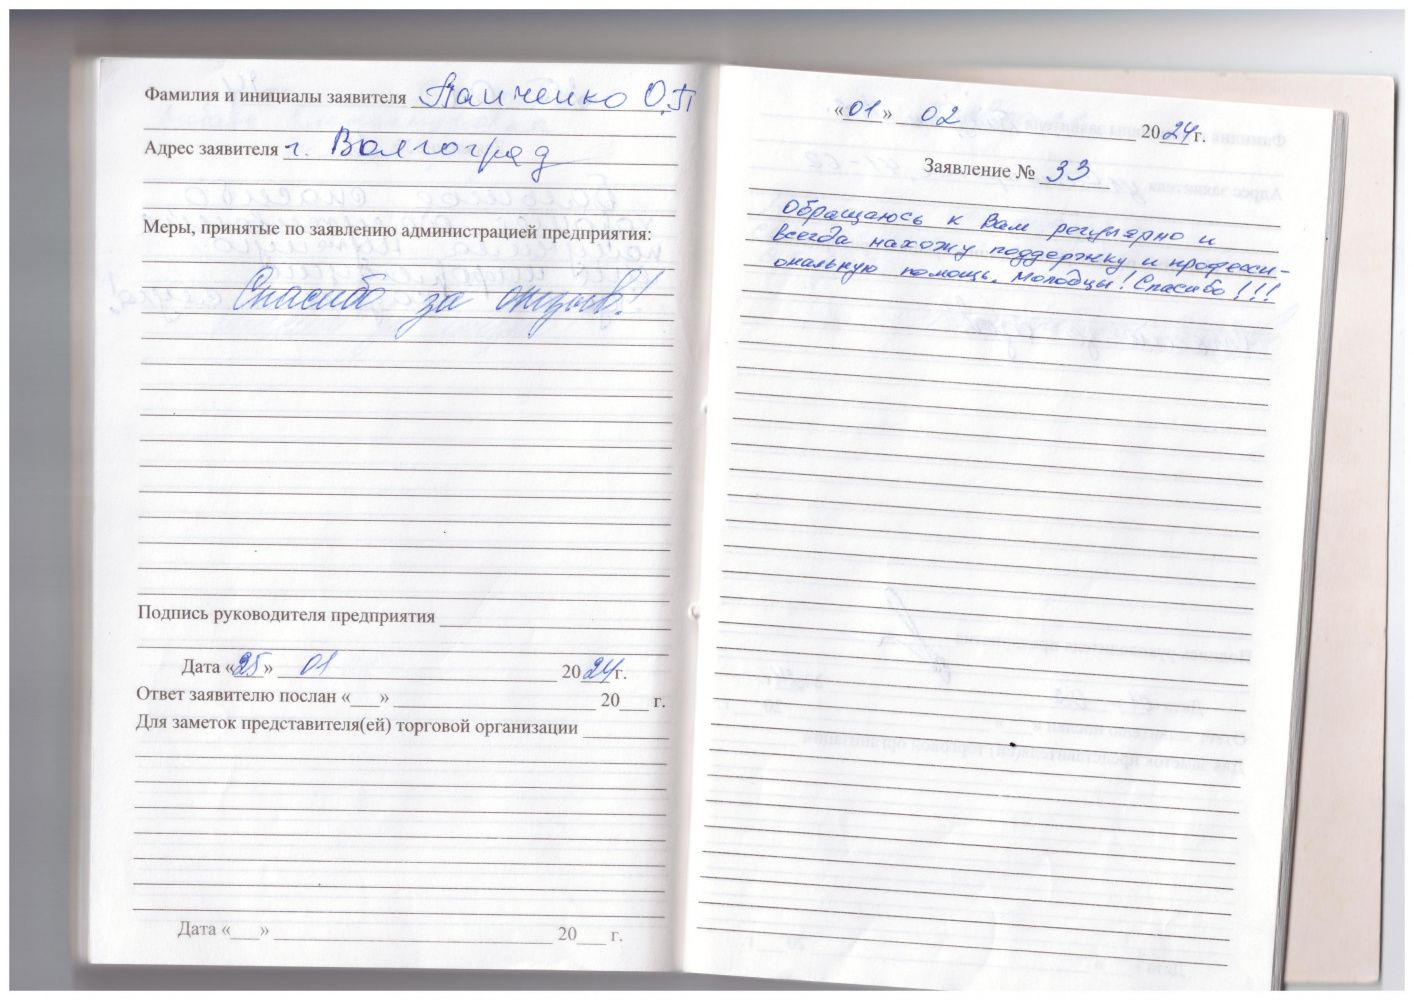 Фамилия и инициалы заявителя Панченко О.П
Адрес заявителя г. Волгоград
Меры, принятые по заявлению администрацией предприятия:
Спасибо за отзыв!
Подпись руководителя предприятия
Дата «25» 01 2024г.
Ответ заявителю послан «___» 20___ г.
Для заметок представителя(ей) торговой организации
Дата «___» 20___ г.
«01» 02 2024г.
Заявление № 33
Обращаюсь к Вам регулярно и
всегда нахожу поддержку и професси-
ональную помощь. Молодцы! Спасибо!!!